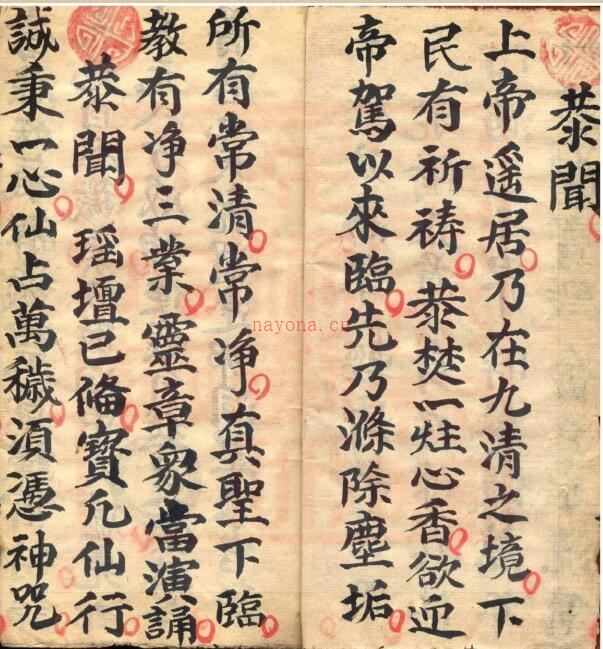 恭聞
上帝遥居乃在九清之境下
民有祈祷恭焚一炷心香欲迎
帝駕以來臨先乃滌除塵垢
所有常清常净真聖下臨
教有净三業靈章衆當演誦
恭聞瑶壇已俻寳凡仙行
誠秉一心仙占萬穢湏憑神咒
nayona.cn